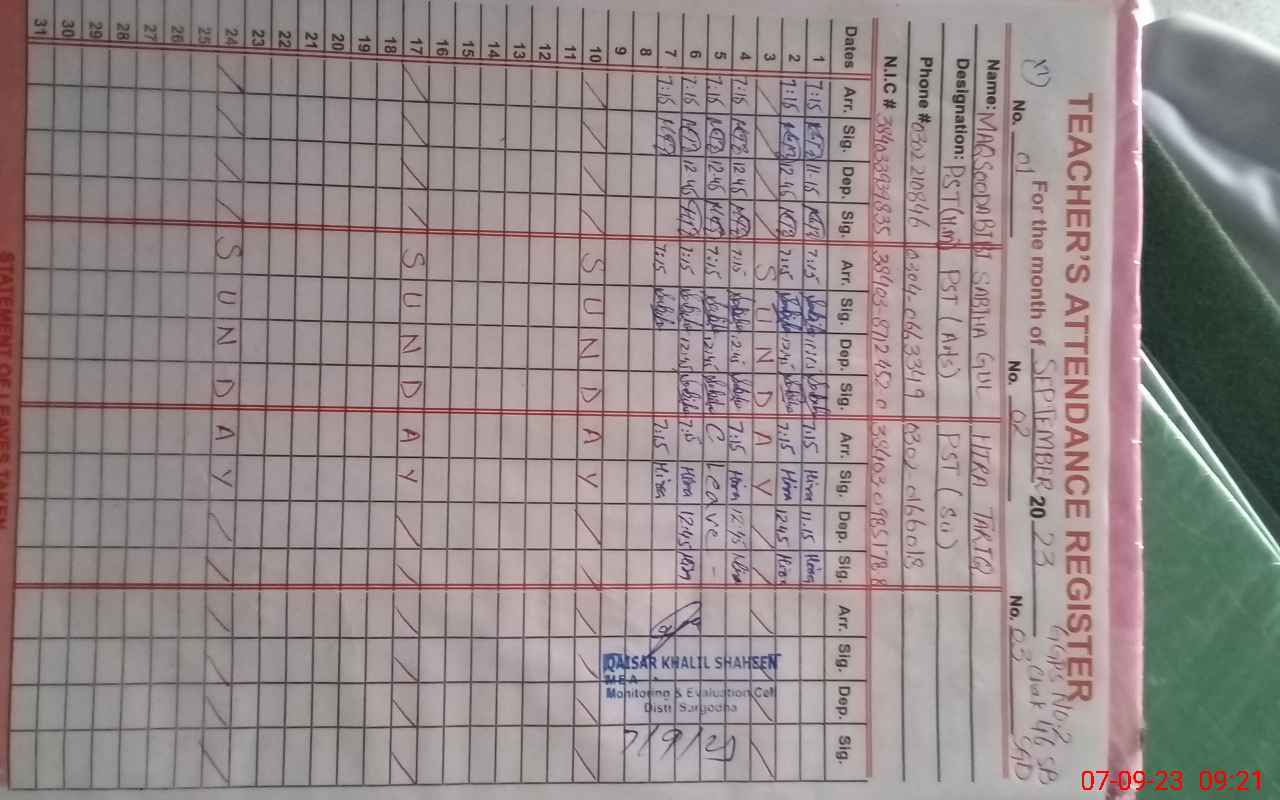 TEACHER'S ATTENDANCE REGISTER
GGPS No:2
Chak 46 SB
SGD
For the month of SEPTEMBER 2023
No. 01 No. 02 No. 03
Name: MAQSOODA BIBI SABIHA GUL HIRA TARIQ
Designation: PST PST (Arts) PST (Sci)
Phone # 0302210846 0304-0663349 0302 0166018
N.I.C # 38403-8712452 0
Dates Arr. Sig. Dep. Sig. Arr. Sig. Dep. Sig. Arr. Sig. Dep. Sig. Arr. Sig. Dep. Sig.
1 7:15 11:15 7:15 11:15 7:15 Hira 11:15 Hira
2 7:15 12:45 7:15 12:45 7:15 Hira 12:45 Hira
3 SUNDAY
4 7:15 12:45 7:15 12:45 7:15 Hira 12:45 Hira
5 7:15 12:45 7:15 12:45 C Leave -
6 7:15 12:45 7:15 12:45 7:15 Hira 12:45 Hira
7 7:15 7:15 7:15 Hira
8
9
10 SUNDAY
11
12
13
14
15
16
17 SUNDAY
18
19
20
21
22
23
24 SUNDAY
25
26
27
28
29
30
31
QAISAR KHALIL SHAHEEN
MEA
Monitoring & Evaluation Cell
Distt Sargodha
7/9/23
STATEMENT OF LEAVES TAKEN
07-09-23 09:21